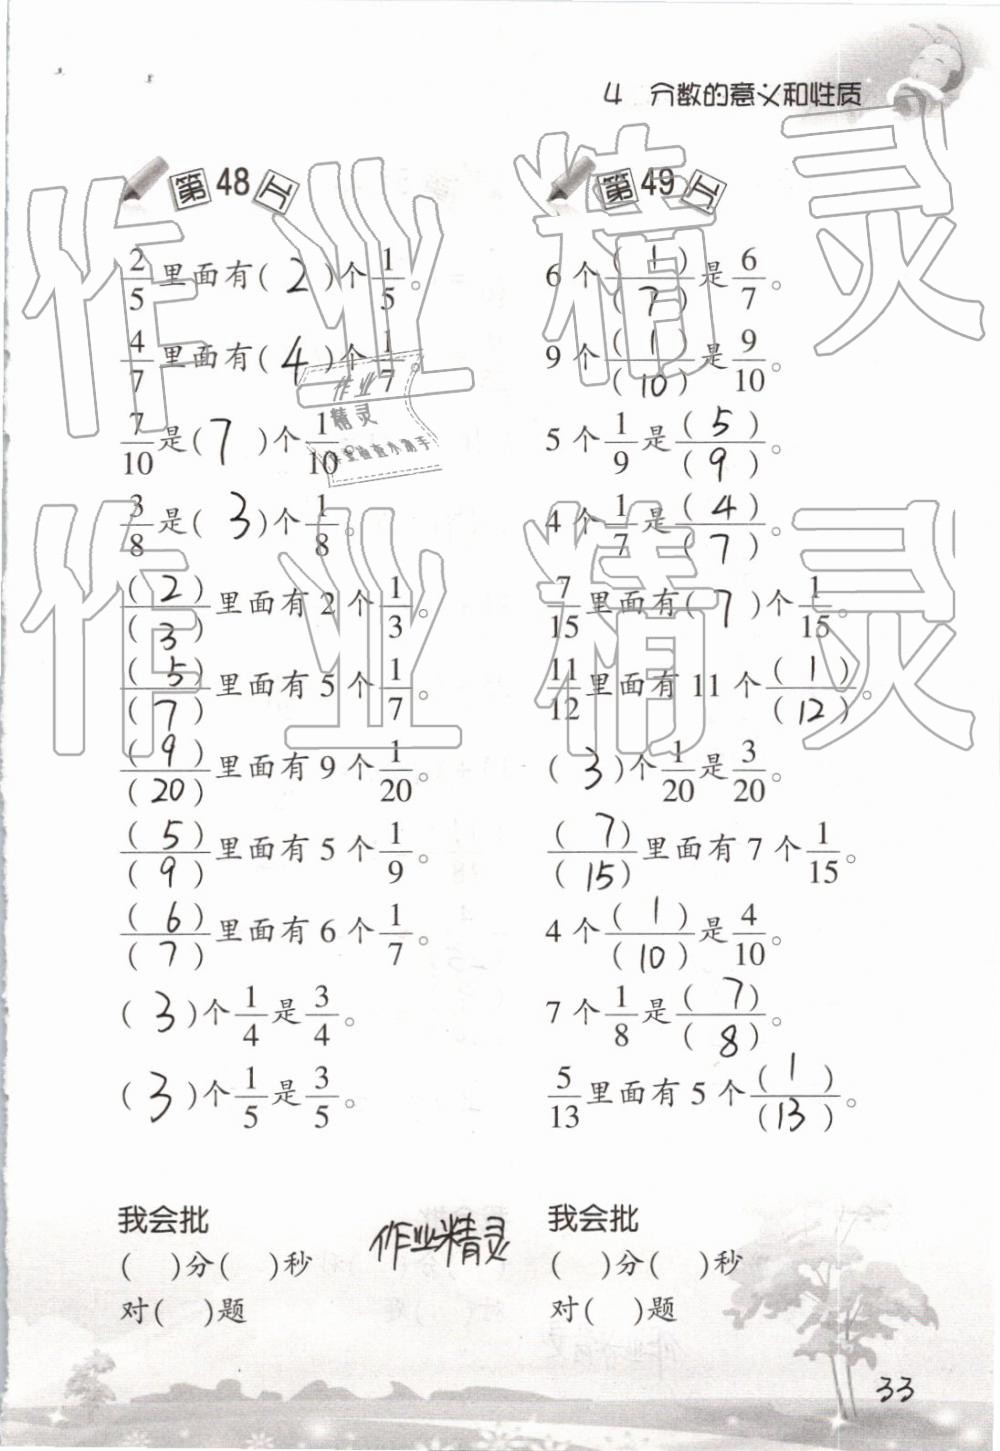 4 分数的意义和性质
第48页
2/5里面有(2)个1/5。
4/7里面有(4)个1/7。
7/10是(7)个1/10。
3/8是(3)个1/8。
(2)/(3)里面有2个1/3。
(5)/(7)里面有5个1/7。
(9)/(20)里面有9个1/20。
(5)/(9)里面有5个1/9。
(6)/(7)里面有6个1/7。
(3)个1/4是3/4。
(3)个1/5是3/5。
我会批
( )分( )秒
对( )题
第49页
6个(1)/(7)是6/7。
9个(1)/(10)是9/10。
5个1/9是(5)/(9)。
4个1/7是(4)/(7)。
7/15里面有(7)个1/15。
11/12里面有11个(1)/(12)。
(3)个1/20是3/20。
(7)/(15)里面有7个1/15。
4个(1)/(10)是4/10。
7个1/8是(7)/(8)。
5/13里面有5个(1)/(13)。
我会批
( )分( )秒
对( )题
作业精灵
33
作业精灵
作业精灵
作业
精灵